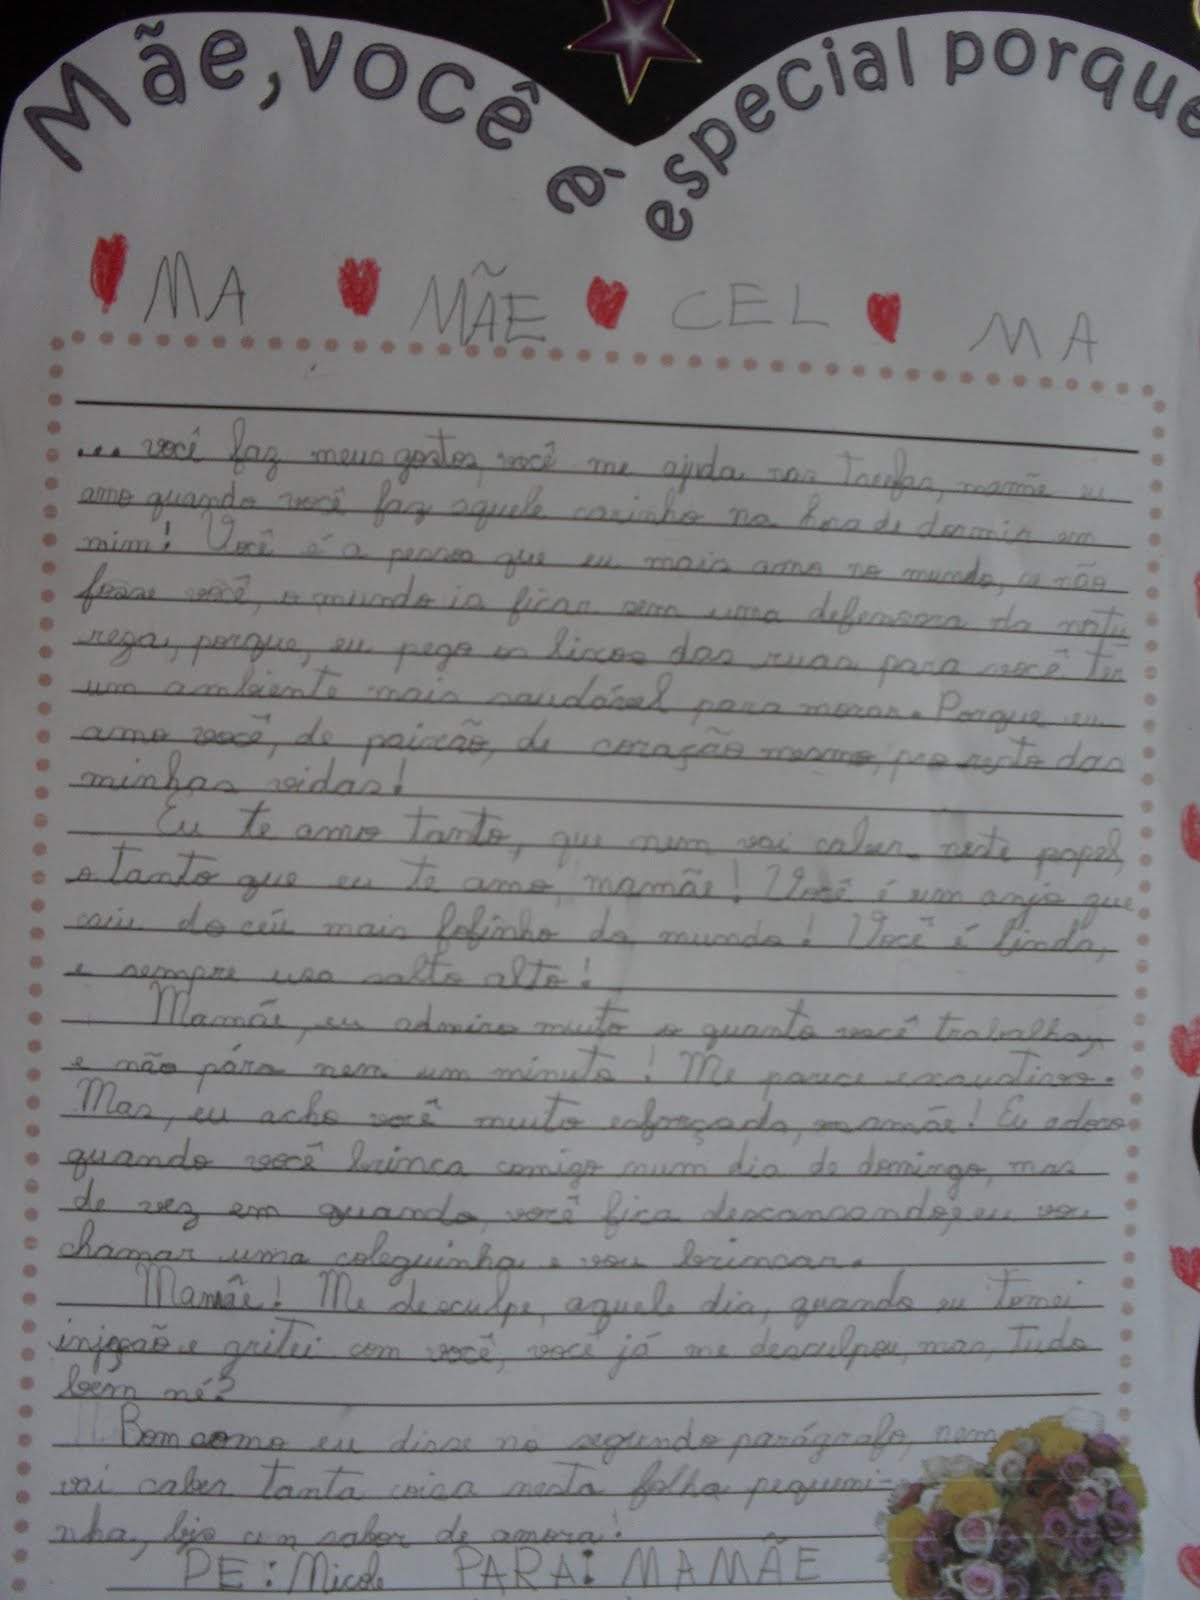 Mãe, você é especial porque
MA MÃE CEL MA
... você faz meus gostos, você me ajuda nas tarefas, mamãe eu
amo quando você faz aquele carinho na hora de dormir em
mim! Você é a pessoa que eu mais amo no mundo, se não
fosse você, o mundo ia ficar sem uma defensora da natu
reza, porque, eu pego os lixos das ruas para você ter
um ambiente mais saudável para morar. Porque eu
amo você, de paixão, de coração mesmo, pro resto das
minhas vidas!
Eu te amo tanto, que nem vai caber neste papel,
o tanto que eu te amo, mamãe! Você é um anjo que
caiu do céu mais fofinho do mundo! Você é linda,
e sempre usa salto alto!
Mamãe, eu admiro muito o quanto você trabalha,
e não pára nem um minuto! Me parece exaustivo.
Mas, eu acho você muito esforçada, mamãe! Eu adoro
quando você brinca comigo num dia de domingo, mas
de vez em quando, você fica descansando, eu vou
chamar uma coleguinha e vou brincar.
Mamãe! Me desculpe, aquele dia, quando eu tomei
injeção e gritei com você, você já me desculpou, mas, tudo
bem né?
Bom como eu disse no segundo parágrafo, nem
vai caber tanta coisa nesta folha pequeni-
nha, sabor de amora!
DE: Nicole PARA: MAMÃE